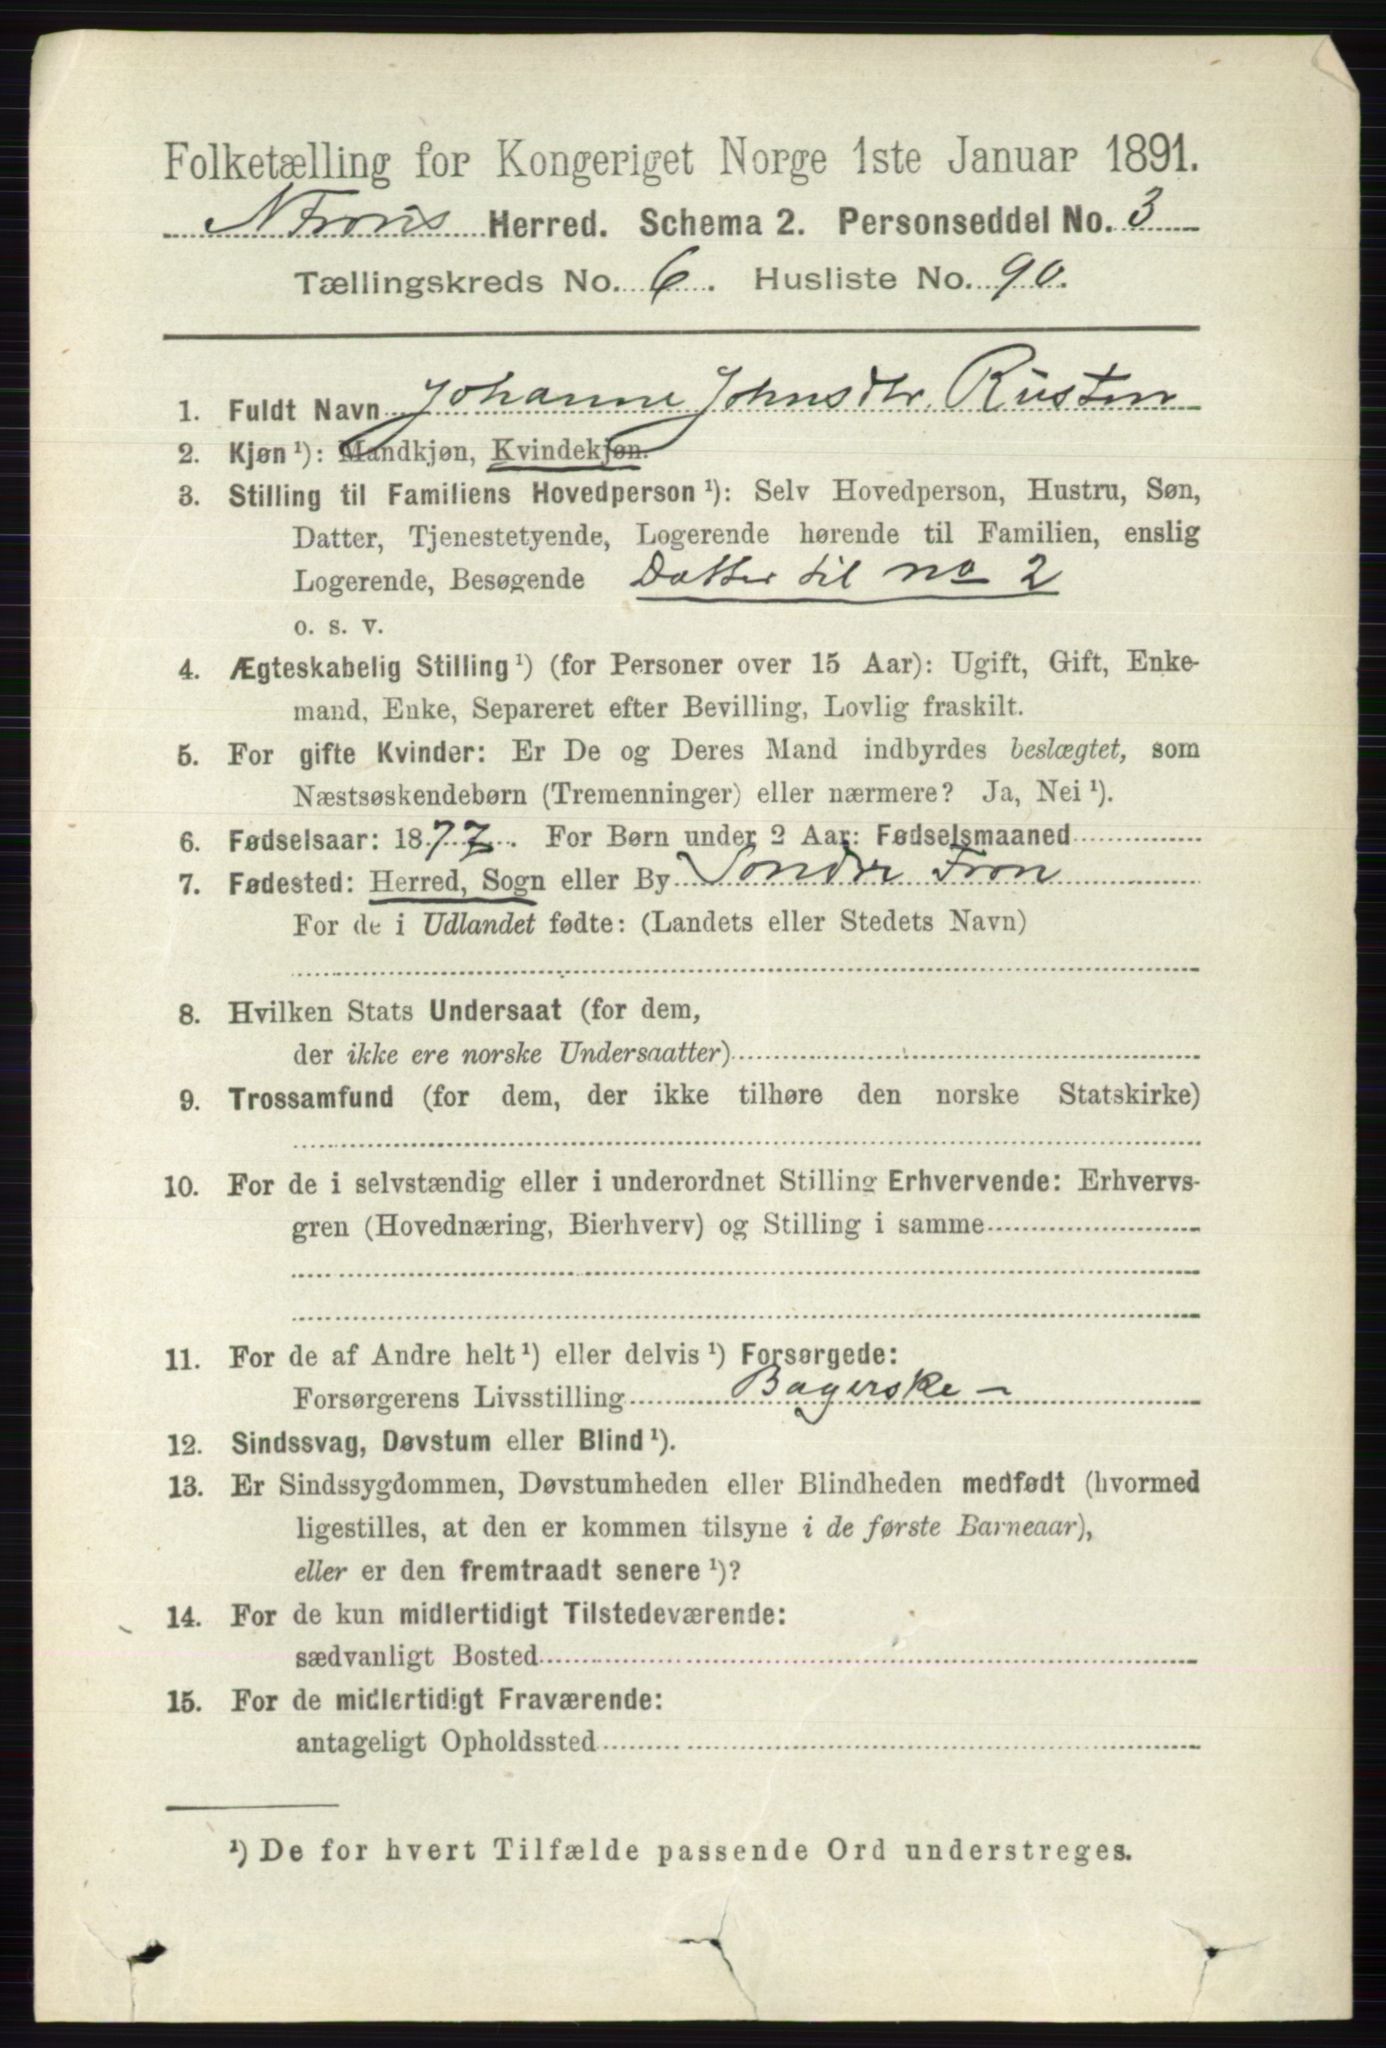 Folketælling for Kongeriget Norge 1ste Januar 1891.
N Frons Herred. Schema 2. Personseddel No. 3
Tællingskreds No. 6. Husliste No. 90.
1. Fuldt Navn Johanne Johnsdtr. Rusten
2. Kjøn ¹): Mandkjøn, Kvindekjøn.
3. Stilling til Familiens Hovedperson ¹): Selv Hovedperson, Hustru, Søn,
Datter, Tjenestetyende, Logerende hørende til Familien, enslig
Logerende, Besøgende Datter til no 2
o. s. v.
4. Ægteskabelig Stilling ¹) (for Personer over 15 Aar): Ugift, Gift, Enke-
mand, Enke, Separeret efter Bevilling, Lovlig fraskilt.
5. For gifte Kvinder: Er De og Deres Mand indbyrdes beslægtet, som
Næstsøskendebørn (Tremenninger) eller nærmere? Ja, Nei ¹).
6. Fødselsaar: 1877. For Børn under 2 Aar: Fødselsmaaned
7. Fødested: Herred, Sogn eller By Søndre Fron
For de i Udlandet fødte: (Landets eller Stedets Navn)
8. Hvilken Stats Undersaat (for dem,
der ikke ere norske Undersaatter)
9. Trossamfund (for dem, der ikke tilhøre den norske Statskirke)
10. For de i selvstændig eller i underordnet Stilling Erhvervende: Erhvervs-
gren (Hovednæring, Bierhverv) og Stilling i samme
11. For de af Andre helt ¹) eller delvis ¹) Forsørgede:
Forsørgerens Livsstilling Bagerske -
12. Sindssvag, Døvstum eller Blind ¹).
13. Er Sindssygdommen, Døvstumheden eller Blindheden medfødt (hvormed
ligestilles, at den er kommen tilsyne i de første Barneaar),
eller er den fremtraadt senere ¹)?
14. For de kun midlertidigt Tilstedeværende:
sædvanligt Bosted
15. For de midlertidigt Fraværende:
antageligt Opholdssted
¹) De for hvert Tilfælde passende Ord understreges.